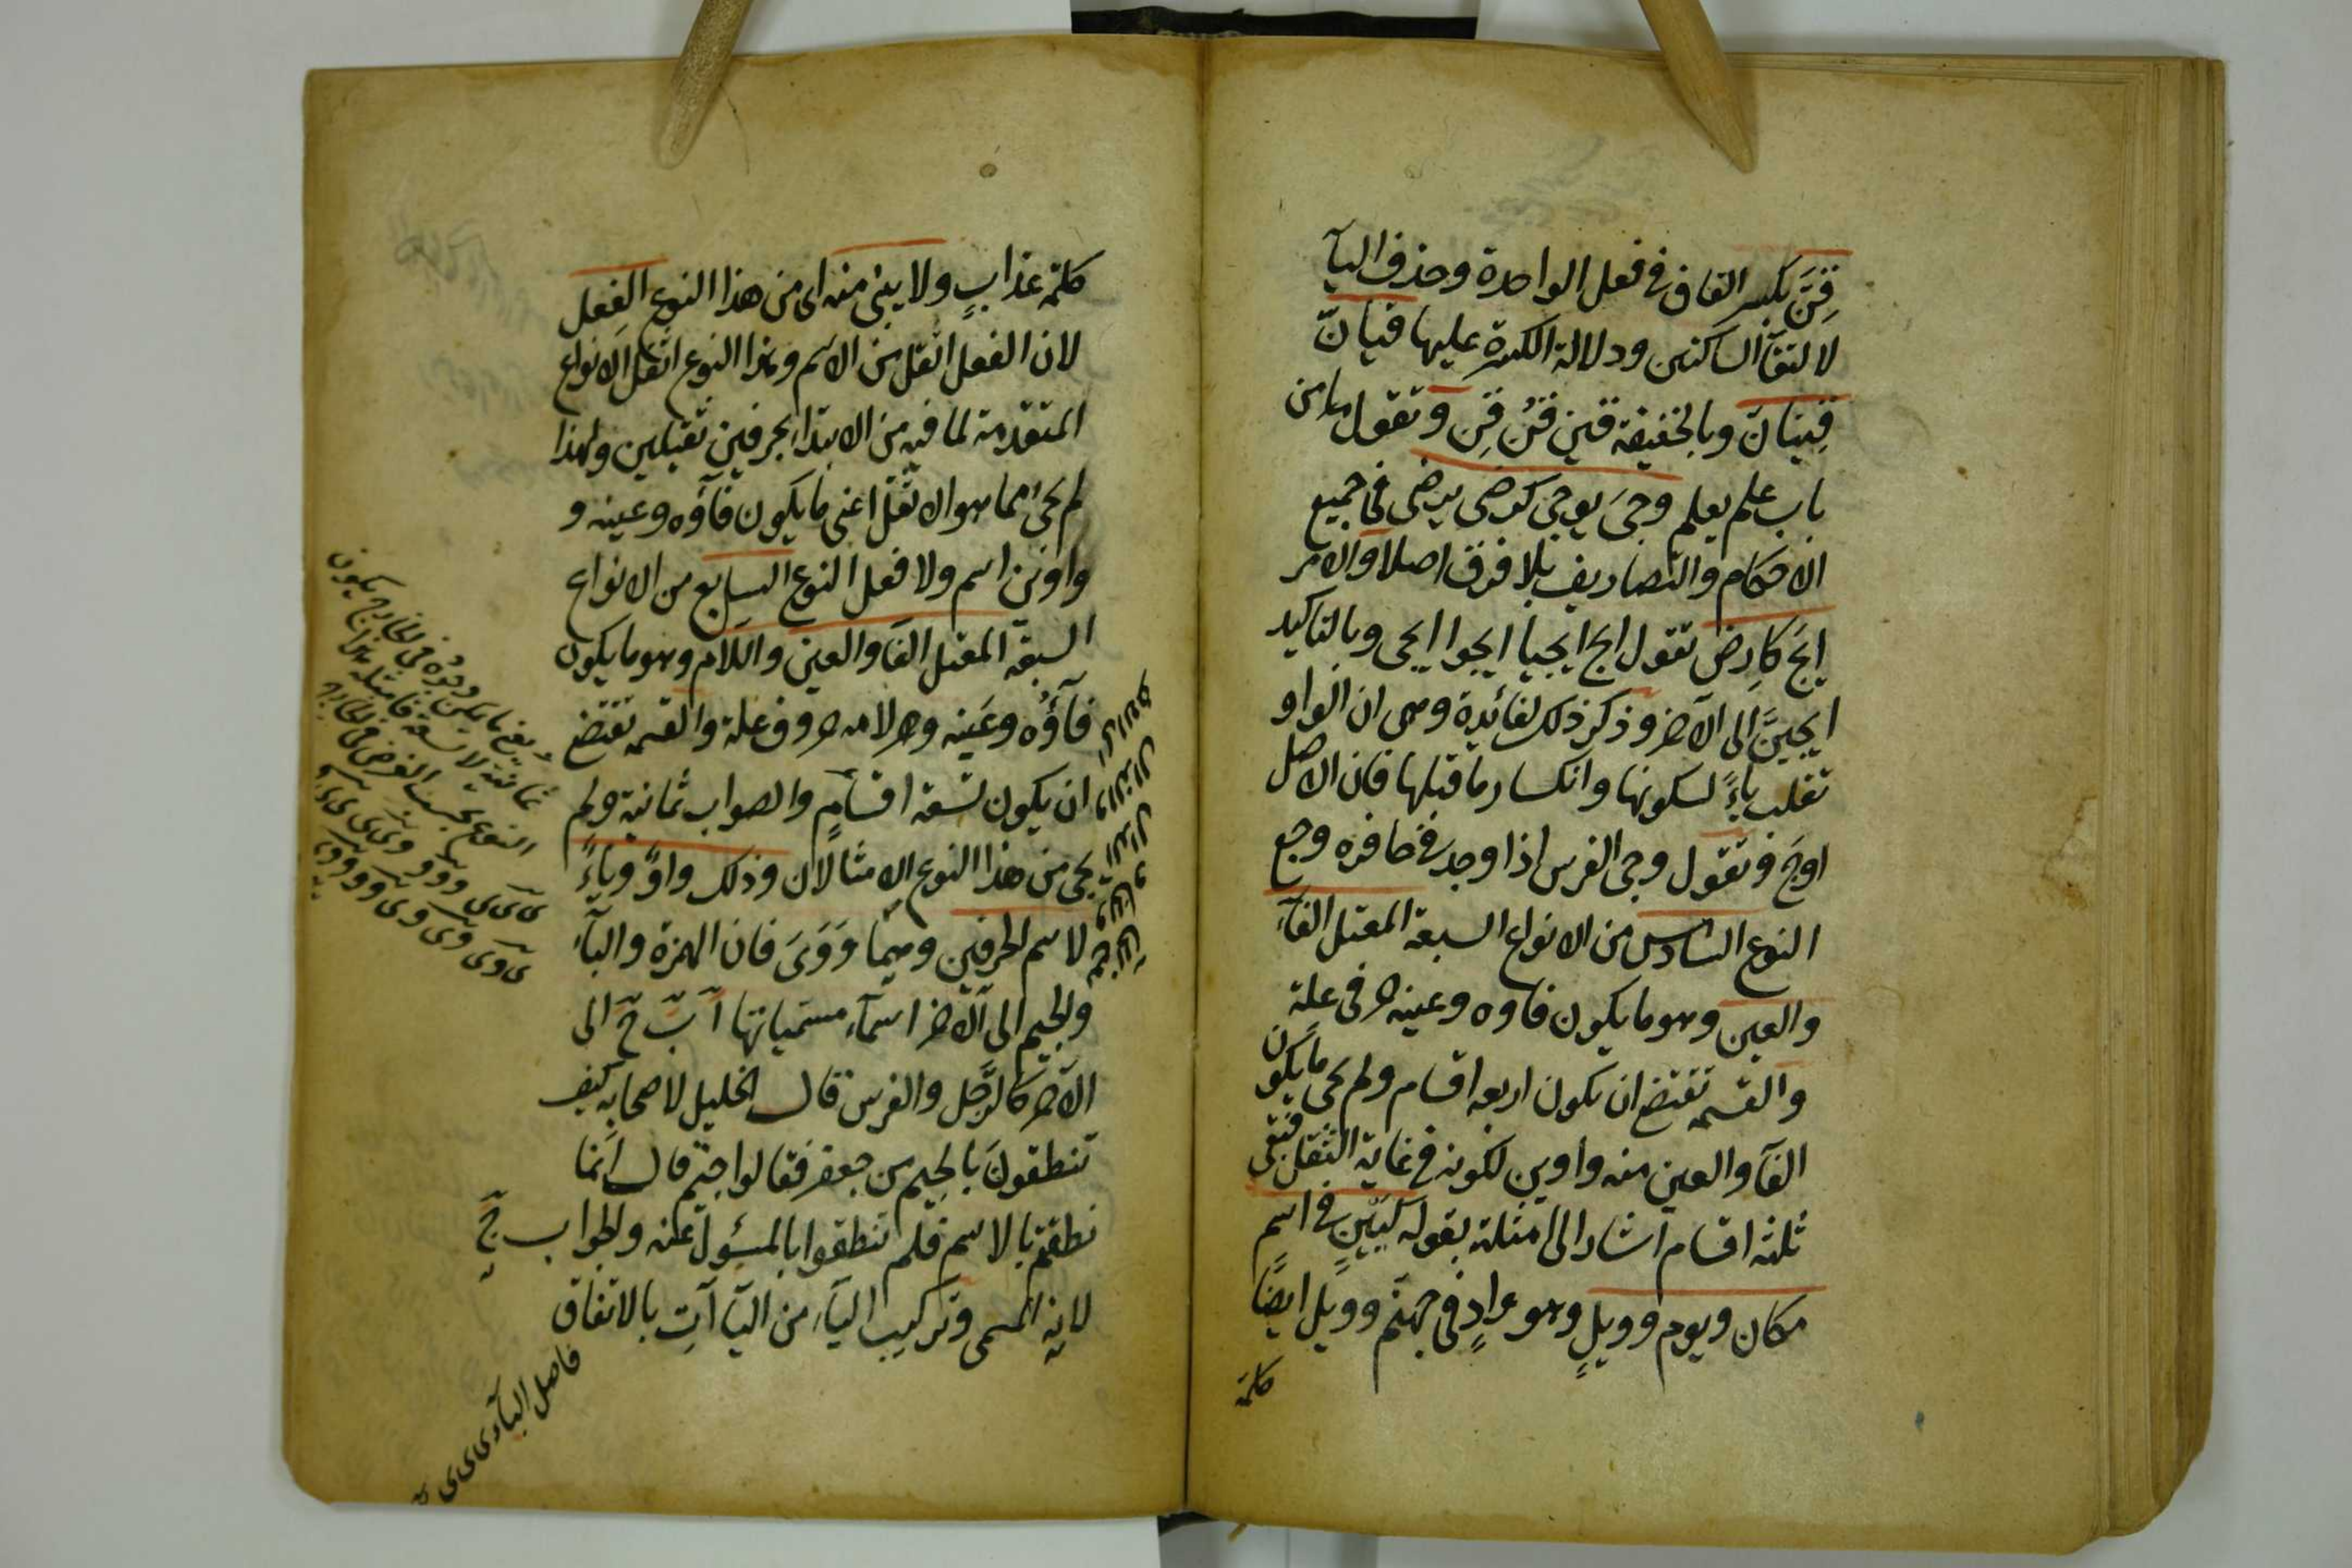 قِنَّ بكسر القاف فى فعل الواحدة وحذف اليآء
لالتقآء الساكنين ودلالة الكسرة عليها قيانّ
قينانّ وبالخفيفة قين قنُ قِن وتقول من
باب علم يعلم وجىَ يوجى كرضى يرضى فى جميع
الاحكام والتصاريف بلا فرق اصلا والامر
ايجَ كارض تقول ايج ايجيا ايجوا ايجى وبالتاكيد
ايجينَّ الى الآخر وذكر ذلك لفائدة وهى ان الواو
تقلب ياءً لسكونها وانكسار ما قبلها فان الاصل
اوجَ وتقول وجى الفرس اذا وجد فى حافره وجع
النوع السادس من الانواع السبعة المعتل الفآء
والعين وهو ما يكون فاوه وعينه حرفى علة
والقسمة تقتضى ان يكون اربعة اقسام ولم يجئ ما يكون
الفآ والعين منه واوين لكونه فى غاية الثقل فتبقى
ثلثة اقسام اشار الى امثلته بقوله كيَيَنٍ فى اسم
مكان ويوم وويلٍ وهو وادٍ فى جهنم وويل ايضًا
كلمة
كلمة عذابٍ ولا يبنى منه اى من هذا النوع الفعل
لان الفعل اثقل من الاسم وهذا النوع اثقل الانواع
المتقدمة لما فيه من الابتدا بحرفين ثقيلين ولهذا
لم يجئ مما هو الاثقل اعنى ما يكون فآؤه وعينه و
واوين اسم ولا فعل النوع السابع من الانواع
السبعة المعتل الفآ والعين واللام وهو ما يكون
فآؤه وعينه ولامه حروف علة والقسمة تقتضى
ان يكون تسعة اقسامٍ والصواب ثمانية ولم
يجئ من هذا النوع الا مثالان وذلك واوٌ وياءٌ
لاسم الحرفين وهما وَ وَىَ فان الهمزة والبآء
والجيم الى الآخر اسمآء مسمياتها آ بَ جَ الى
الآخر كالرَّجل والفرس قال الخليل لاصحابه كيف
تنطقونَ بالجيم من جعفر فقالوا جيم قال انما
نطقتم بالاسم فلم تنطقوا بالمسئول عنه والجواب جَ
لانه المسمى وتركيب اليآء من اليآآت بالاتفاق
فاصل اليآء ى ى ى